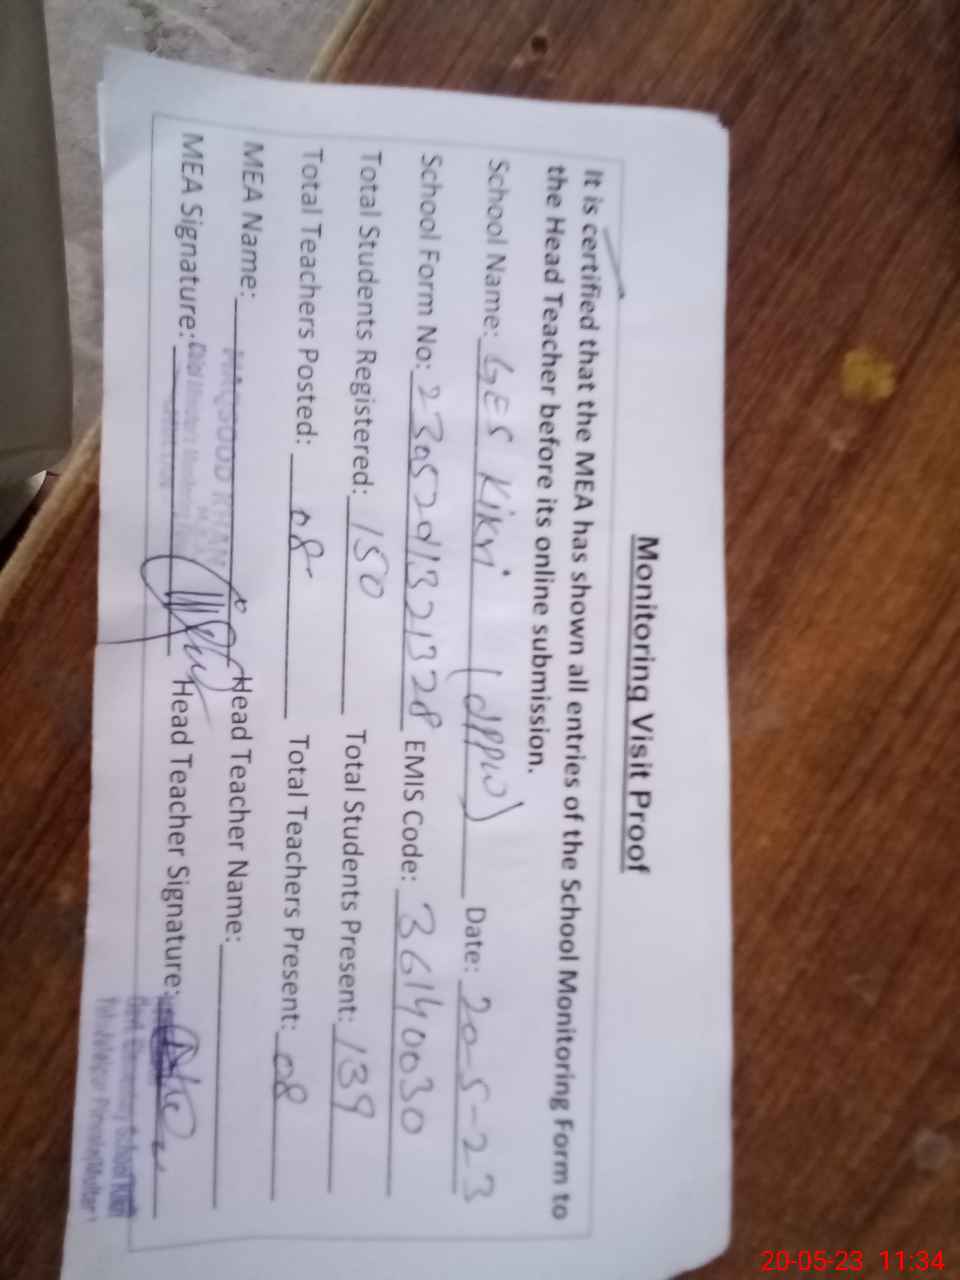 Monitoring Visit Proof
It is certified that the MEA has shown all entries of the School Monitoring Form to
the Head Teacher before its online submission.
School Name: GES Kikri (dppw) Date: 20-5-23
School Form No: 2305201321328 EMIS Code: 36140030
Total Students Registered: 150 Total Students Present: 139
Total Teachers Posted: 08 Total Teachers Present: 08
MEA Name: MAQSOOD KHAN Head Teacher Name:
MEA Signature: Head Teacher Signature:
20-05-23 11:34